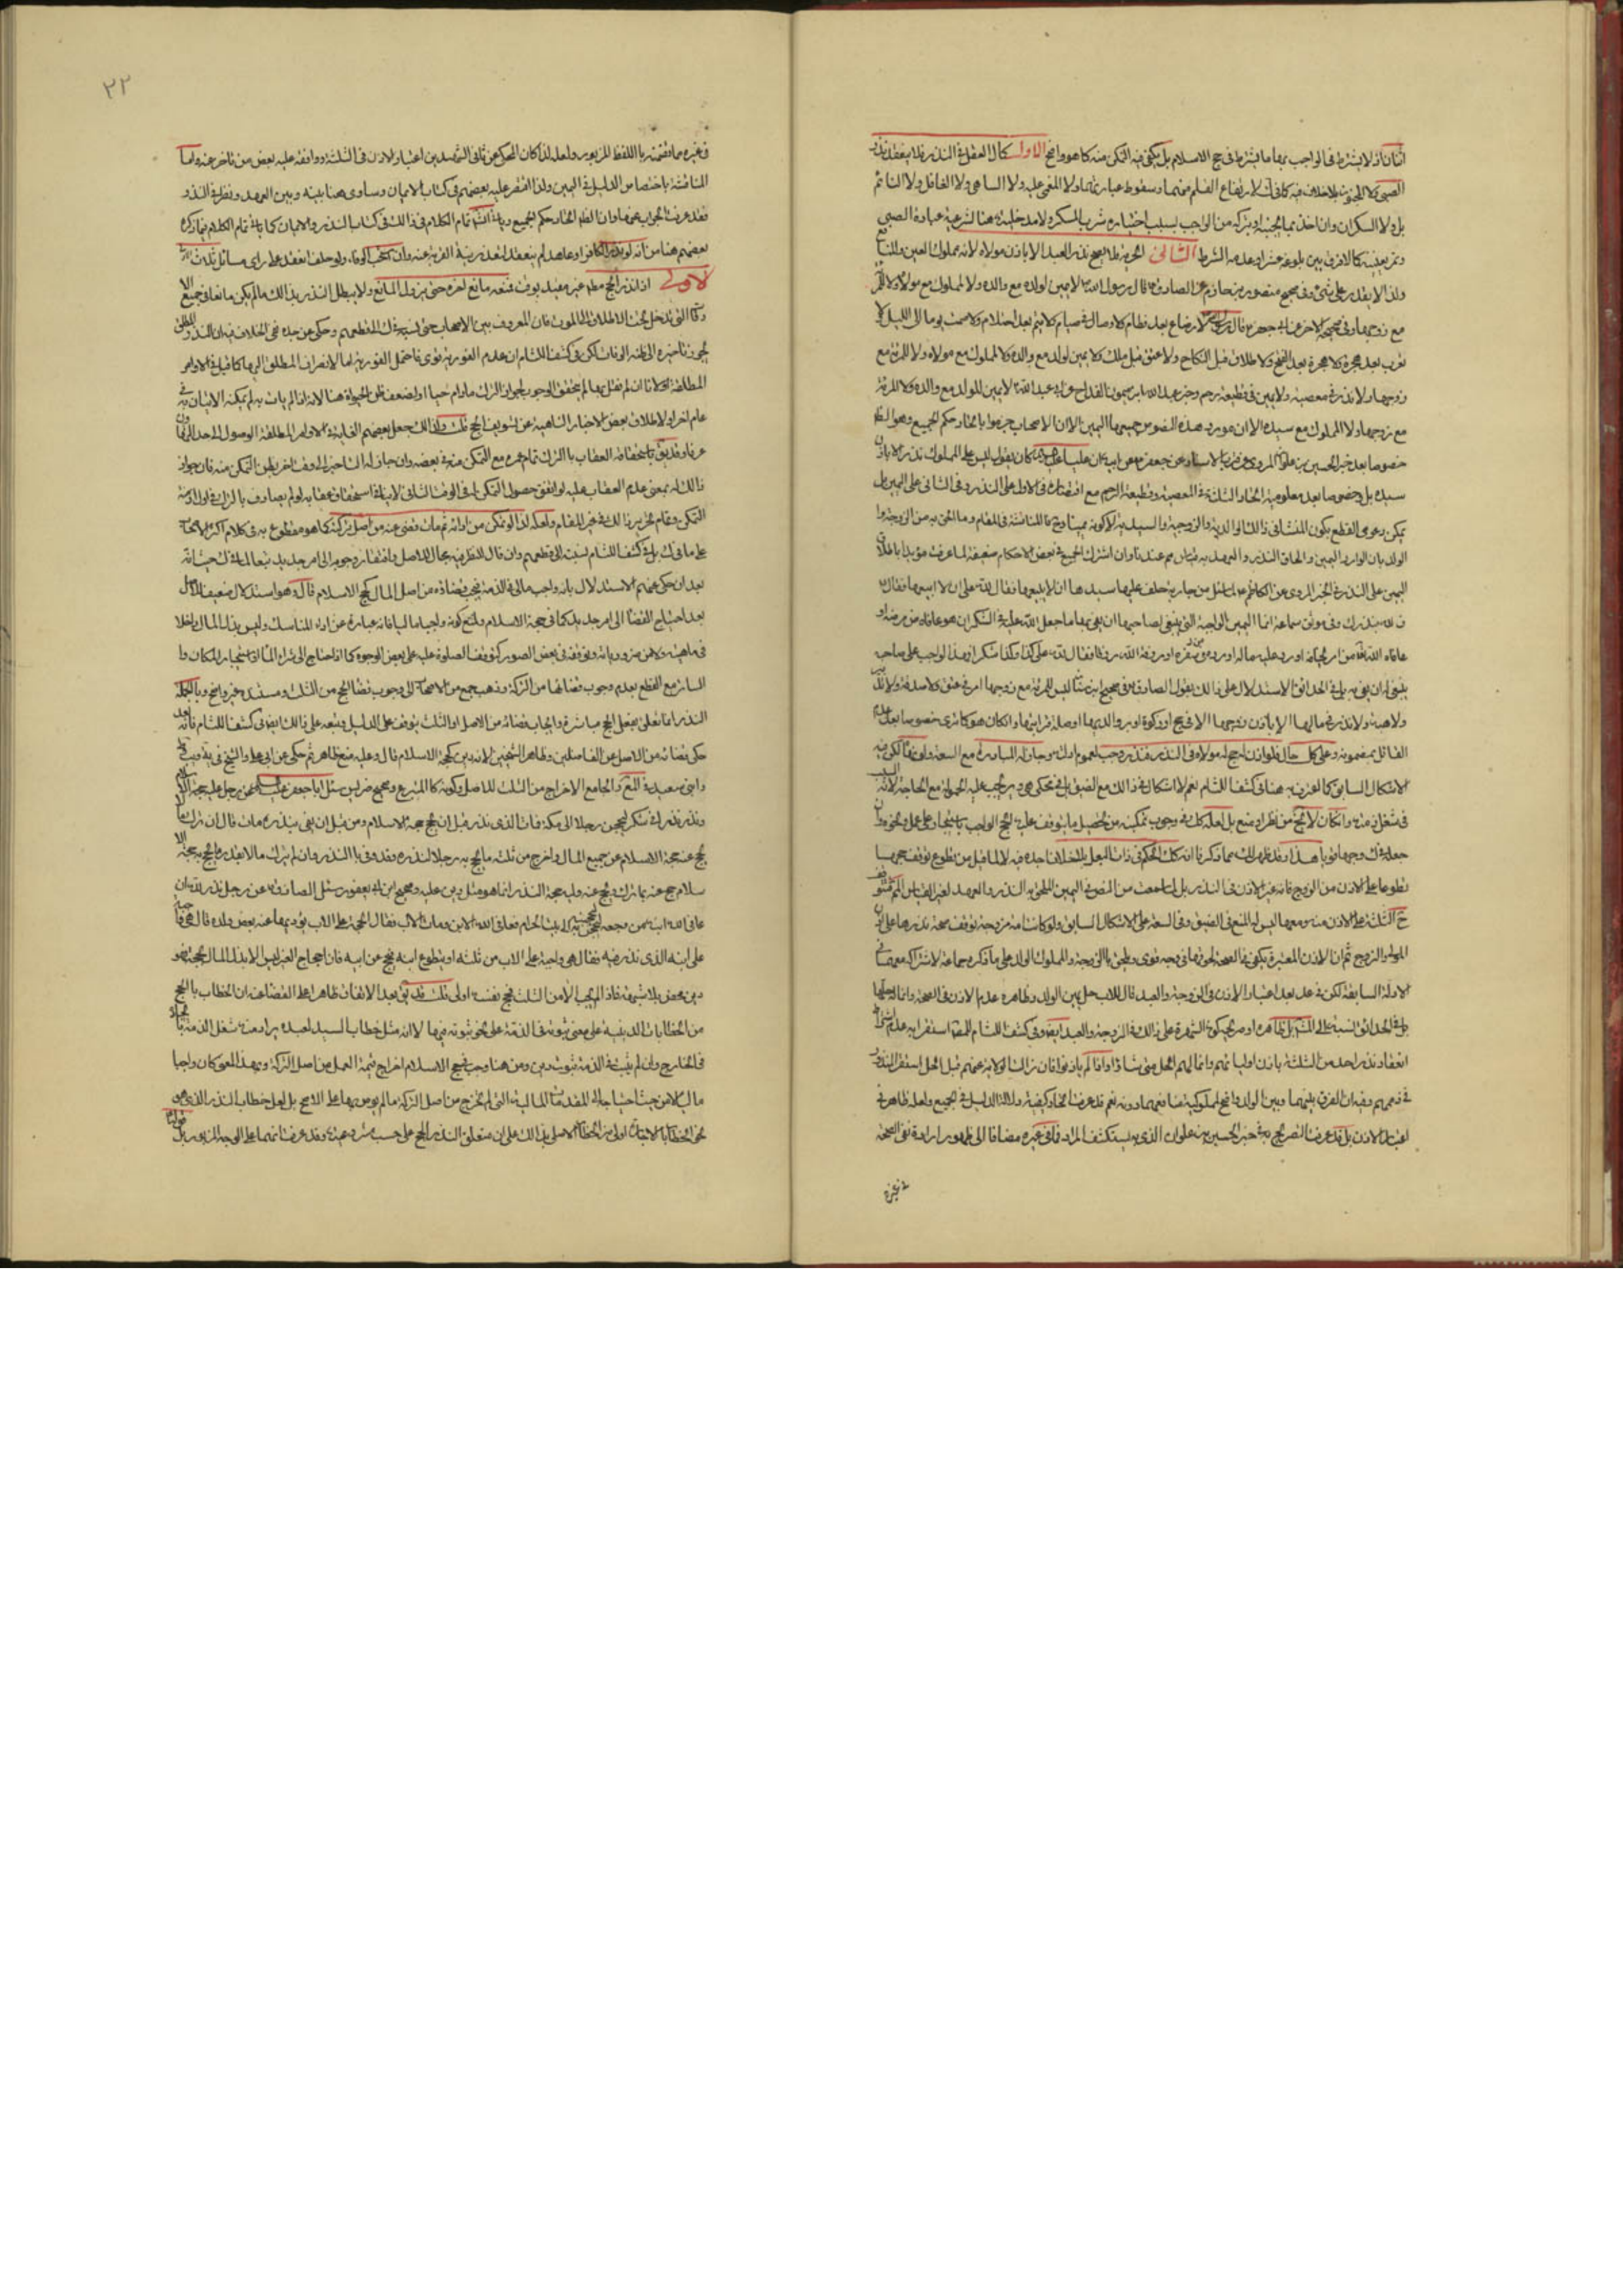 اثنان اذ لا يشترط في الواجب بهما ما يشترط في حج الاسلام بل يكفي فيه التمكن منه كما هو واضح الاول كمال العقل في النذر فلا ينعقد نذر
الصبي ولا المجنون بلا خلاف فيه لارتفاع القلم عنهما وسقوط عبارتهما ولا المغمى عليه ولا الساهي ولا الغافل ولا النائم
بل ولا السكران وان اخذ بما يجنيه ويتركه من الواجب بسبب اختياره شرب المسكر ولا مدخلية هنا لشرعية عبادة الصبي
وتمرينيته كما لا فرق بين بلوغه عشرا وعدمه الشرط الثاني الحرية فلا يصح نذر العبد الا باذن مولاه لانه مملوك العين والمنافع
ولذا لا يقدر على شيء وفي صحيح منصور بن حازم عن الصادق قال رسول الله لا يمين لولد مع والده ولا لمملوك مع مولاه ولا للمرأة
مع زوجها وفي صحيحه الاخر عن ابي جعفر قال لا رضاع بعد فطام ولا وصال في صيام ولا يتم بعد احتلام ولا صمت يوما الى الليل ولا
تعرب بعد الهجرة ولا هجرة بعد الفتح ولا طلاق قبل النكاح ولا عتق قبل ملك ولا يمين لولد مع والده ولا لمملوك مع مولاه ولا للمرأة مع
زوجها ولا نذر في معصية ولا يمين في قطيعة رحم وخبر عبد الله بن ميمون القداح عن ابي عبد الله لا يمين للولد مع والده ولا للمرأة
مع زوجها ولا المملوك مع سيده الا ان مورد هذه النصوص جميعها اليمين الا ان الاصحاب جزموا باتحاد حكم الجميع وهو الظاهر
خصوصا بعد خبر الحسين بن علوان المروي عن قرب الاسناد عن جعفر عن ابيه ان عليا كان يقول ليس على المملوك نذر الا باذن
سيده بل وخصوصا بعد معلومية اتحاد الثلاثة في المعصية وقطيعة الرحم مع اقتصاره في الاول على النذر وفي الثاني على اليمين بل
يمكن دعوى القطع بكون المنشأ في ذلك الوالدية والزوجية والسيدية لا كونه يمينا وح فالمناقشة في المقام وما الحق به من الزوجة و
الولد بان الوارد اليمين والحاق النذر والعهد به قياس محرم عندنا وان اشترك الجميع في بعض الاحكام ضعيفة لما عرفت مؤيدا باطلاق
اليمين على النذر في الخبر المروي عن الكاظم لما سئل عن جارية حلف عليها سيدها ان لا يبيعها فقال لله على ان لا ابيعها فقال
ف لله بنذرك وفي موثق سماعة انما اليمين الواجبة التي ينبغي لصاحبها ان يفي بها ما جعل الله عليه في الشكر ان هو عافاه من مرضه او
عافاه الله من امر يخافه او رد عليه ماله او رده من سفره او رزقه الله رزقا فقال لله على كذا وكذا شكرا فهذا الواجب على صاحبه
ينبغي له ان يفي به بل في الحدائق الاستدلال على ذلك بقول الصادق في صحيح ابن سنان ليس للمرأة مع زوجها امر في عتق ولا صدقة ولا تدبير
ولا هبة ولا نذر في مالها الا باذن زوجها الا في حج او زكوة او بر والديها او صلة قرابتها وان كان هو كما ترى خصوصا بعد عدم
القائل بمضمونه وعلى كل حال فلو اذن له مولاه في النذر فنذر وجب لعموم ادلته وجاز له المبادرة مع السعة ولو نهاه لكن فيه
الاشكال السابق كما اعترف به هنا في كشف اللثام نعم لا اشكال في ذلك مع الضيق بل في محكي هي ويجب عليه الحمولة مع الحاجة لانه السبب
في شغل ذمته وان كان لا يخ من نظر او منع بل لعله كك في وجوب تمكينه من تحصيل ما يتوقف عليه الحج الواجب باستيجاره على عمل ونحوه وان
جعله في ك وجها قويا هذا وقد ظهر لك مما ذكرنا انه كك الحكم في ذات البعل بلا خلاف اجده فيه
تطوعا على الاذن من الزوج فانه غير الاذن في النذر بل لما سمعت من النصوص اليمين الملحق به النذر والعهد
ح الثلاثة على الاذن منه ومعها ليس له المنع في الضيق وفي السعة على الاشكال السابق ولو كانت امة مزوجة توقف صحة نذرها على اذن
المولى والزوج ثم ان الاذن المعتبرة يكفي فيها الصحة والحق بالزوجة والمملوك الولد على ما ذكره جماعة لاشتراكه معهما في
الادلة السابقة لكن في عد بعد اعتبار الاذن في الزوجة والعبد قال للاب حل يمين الولد وظاهره عدم الاذن في الصحة وانما له حلها
بل في الحدائق نسبته الى المشهور بل ظاهره او صريحه كون الشهرة على ذلك في الزوجة والعبد ايضا وفي كشف اللثام
انعقاد نذر احد من الثلاثة باذن اوليائهم وانما لهم الحل متى شاؤا واذا لم ياذنوا فان زالت الولاية عنهم قبل الحل استقر المنذور
في ذممهم وفيه ان الفرق بينهما وبين الولد واضح لمملوكية منافعهما دونه نعم قد عرفت اتحاد كيفية دلالة الدليل في الجميع ولعله ظاهر في
اعتبار الاذن بل قد عرفت التصريح به في خبر الحسين بن علوان الذي به يستكشف المراد في غيره مضافا الى ظهور ارادة نفي الصحة
في غيره
٢٢
في غيره مما تضمنه باللفظ المزبور ولعله لذا كان المحكي عن ثاني الشهيدين اعتبار الاذن في الثلاثة ووافقه عليه بعض من تاخر عنه واما
المناقشة باختصاص الدليل في اليمين ولذا اقتصر عليه بعضهم في كتاب الايمان وساوى هنا بينه وبين العهد ونظر في النذر
فقد عرفت الجواب عنها وان الظاهر اتحاد حكم الجميع وياتي انشاء الله تمام الكلام في ذلك في كتاب النذر والايمان كما ياتي تمام الكلام فيما ذكره
بعضهم هنا من انه لو نذر الكافر او عاهد لم ينعقد لتعذر نية القربة عنه وان استحب الوفاء ولو حلف انعقد على راي مسائل ثلاث
الاولى اذا نذر الحج مطلقا غير مقيد بوقت فمنعه مانع اخره حتى يزول المانع ولا يبطل النذر بذلك ما لم يكن مانعا في جميع
التي تدخل تحت الاطلاق الى الموت فان المعروف بين الاصحاب حتى نسبه في ك الى قطعهم وحكى عن جده نفي الخلاف فيه ان النذر المطلق
يجوز تاخيره الى ظنه الوفاة لكن في كشف اللثام ان عدم الفورية اقوى فاحتمل الفورية اما لانصراف المطلق اليها كما قيل في الاوامر
المطلقة او لانا ان لم نقل بها لم يتحقق الوجوب لجواز الترك ما دام حيا او لضعف ظن الحيوة هنا لانه اذا لم يات به لم يمكنه الاتيان به في
عام اخر او لاطلاق بعض الاخبار الناهية عن تسويف الحج قلت ولذلك جعل بعضهم الغاية في الاوامر المطلقة الوصول الى حد التهاون
عرفا وقد يق باستحقاقه العقاب بالترك تمام عمره مع التمكن منه في بعضه وان جاز له التاخير الى وقت اخر يظن التمكن منه فان جواز
ذلك له بمعنى عدم العقاب عليه لو اتفق حصول التمكن له في الوقت الثاني لا ينافي استحقاق عقابه لو لم يصادف
التمكن وتمام تحرير ذلك في غير المقام ولعله لذا لو تمكن من ادائه ثم مات قضي عنه من اصل تركته كما هو مقطوع به في كلام اكثر الاصحاب
على ما في ك بل في كشف اللثام نسبته الى قطعهم وان قال للنظر فيه مجال للاصل وافتقار وجوبه الى امر جديد تبعا لما في ك حيث انه
بعد ان حكى عنهم الاستدلال بانه واجب مالي في الذمة فيجب قضاؤه من اصل المال كحج الاسلام قال وهو استدلال ضعيف للاصل
بعد احتياج القضاء الى امر جديد كما في حجة الاسلام ولمنع كونه واجبا ماليا فانه عبارة عن اداء المناسك وليس بذل المال داخلا
في ماهيته ولا من ضرورياته وتوقفه في بعض الصور كتوقف الصلوة عليه على بعض الوجوه كما اذا احتاج الى شراء الماء او استيجار المكان و
الساتر مع القطع بعدم وجوب قضائها من التركة وذهب جمع من الاصحاب الى وجوب قضاء الحج من الثلث ومستنده غير واضح وبالجملة
النذر انما تعلق بفعل الحج مباشرة وايجاب قضائه من الاصل او الثلث يتوقف على الدليل وتبعه على ذلك ايضا في كشف اللثام فانه بعد
حكى قضائه من الاصل عن الفاضلين وظاهر الشيخين لانه دين كحجة الاسلام قال وعليه منع ظاهر ثم حكى عن ابي علي والشيخ في يه وب
وابني سعيد في المع والجامع الاخراج من الثلث للاصل وكونه كالمتبرع وصحيح ضريس سئل ابا جعفر عن رجل عليه حجة الاسلام
ونذر نذرا في شكر ليحجن رجلا الى مكة فمات الذي نذر قبل ان يحج حجة الاسلام ومن قبل ان يفي بنذره مات قال ان ترك مالا
يحج عنه حجة الاسلام من جميع المال واخرج من ثلثه ما يحج به رجلا لنذره وقد وفى بالنذر وان لم يترك مالا الا بقدر ما يحج به حجة الا
سلام حج عنه بما ترك ويحج عنه وليه حجة النذر انما هو مثل دين عليه وصحيح ابن ابي يعفور سئل الصادق عن رجل نذر لله ان
عافى الله ابنه من وجعه ليحجنه الى بيت الله الحرام فعافى الله الابن ومات الاب فقال الحجة على الاب يؤديها عنه بعض ولده قال هي واجبة
على ابنه الذي نذر فيه فقال هي واجبة على الاب من ثلثه او يتطوع ابنه فيحج عن ابيه فان احجاج الغير ليس الا بذل المال لحجه فهو
دين محض بلا شبهة فاذا لم يجب الا من الثلث فحج نفسه اولى قلت قد يق بعد الاتفاق ظاهرا على القضاء عنه ان الخطاب بالحج
من الخطابات الدينية على معنى ثبوته في الذمة على نحو ثبوته فيها لا انه مثل خطاب السيد لعبده يراد منه شغل الذمة بايجاده
في الخارج وان لم يثبت في الذمة ثبوت دين ومن هنا وجب في حج الاسلام اخراج قيمة العمل من اصل التركة وبهذا المعنى كان واجبا
ماليا لا من حيث احتياجه الى المقدمات المالية التي لم تخرج من اصل التركة ما لم يوص بها على الاصح بل لعل خطاب النذر الذي هو
نحو الخطاب بالاجارة اولى من الخطاب الاصلي بذلك على ان متعلق النذر الحج على حسب مشروعيته وقد عرفت انها على الوجه المزبور بل